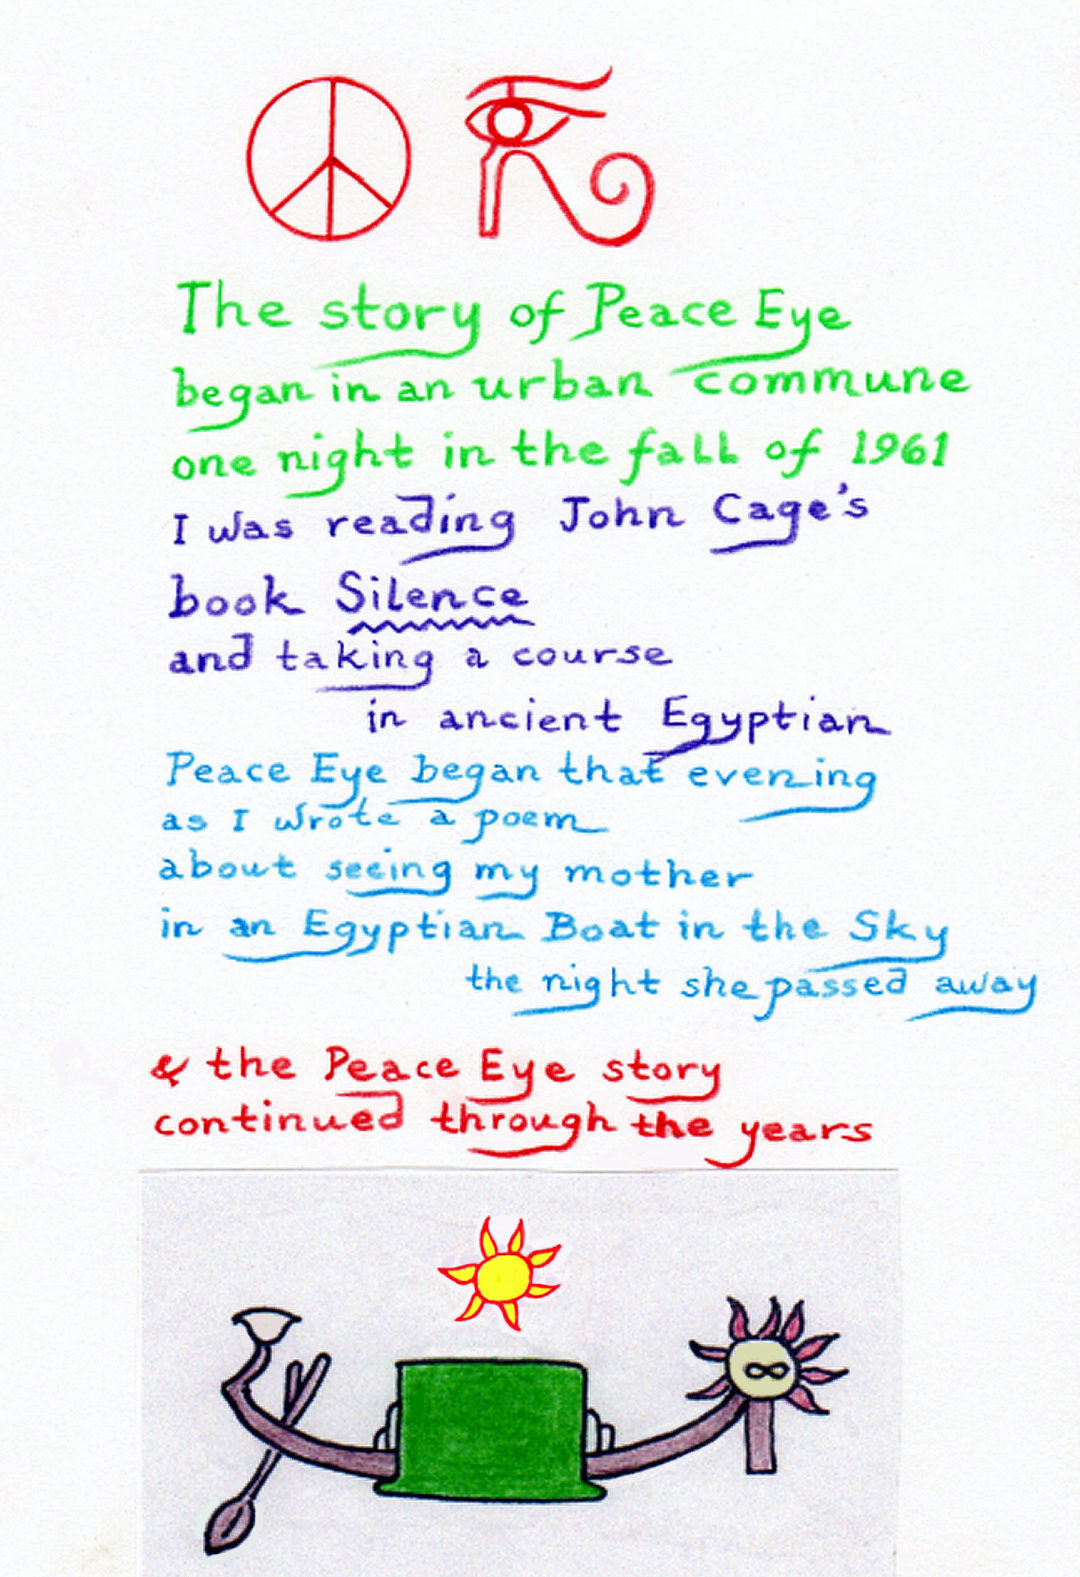 The story of Peace Eye
began in an urban commune
one night in the fall of 1961
I was reading John Cage's
book Silence
and taking a course
in ancient Egyptian
Peace Eye began that evening
as I wrote a poem
about seeing my mother
in an Egyptian Boat in the Sky
the night she passed away
& the Peace Eye story
continued through the years